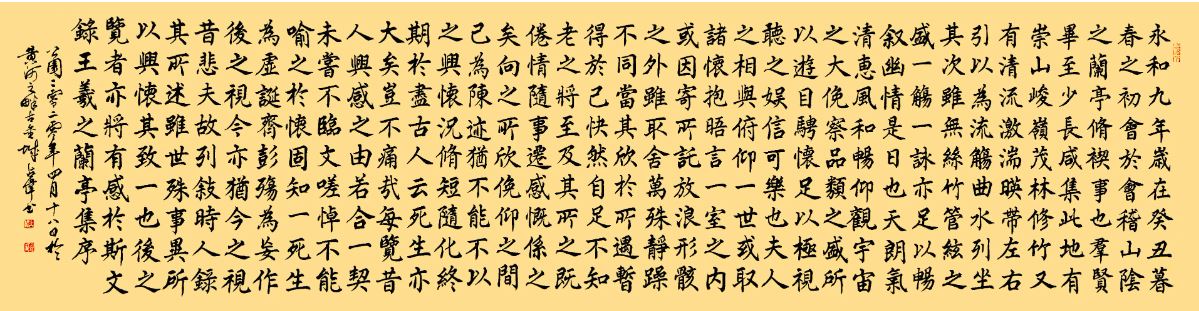 永和九年歲在癸丑暮
春之初會於會稽山陰
之蘭亭脩禊事也羣賢
畢至少長咸集此地有
崇山峻嶺茂林修竹又
有清流激湍暎帶左右
引以為流觴曲水列坐
其次雖無絲竹管絃之
盛一觴一詠亦足以暢
叙幽情是日也天朗氣
清惠風和暢仰觀宇宙
之大俛察品類之盛所
以遊目騁懷足以極視
聽之娛信可樂也夫人
之相與俯仰一世或取
諸懷抱晤言一室之內
或因寄所託放浪形骸
之外雖取舍萬殊靜躁
不同當其欣於所遇暫
得於己快然自足不知
老之將至及其所之既
倦情隨事遷感慨係之
矣向之所欣俛仰之間
已為陳迹猶不能不以
之興懷況脩短隨化終
期於盡古人云死生亦
大矣豈不痛哉每覽昔
人興感之由若合一契
未嘗不臨文嗟悼不能
喻之於懷固知一死生
為虛誕齊彭殤為妄作
後之視今亦猶今之視
昔悲夫故列敍時人錄
其所述雖世殊事異所
以興懷其致一也後之
覽者亦將有感於斯文
錄王羲之蘭亭集序
二零二零年四月十八日於
黃河之畔古城書